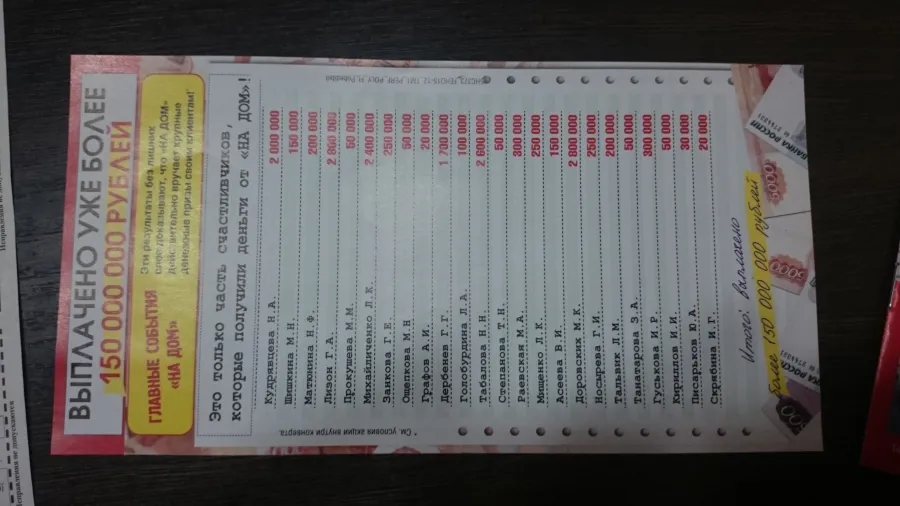 ВЫПЛАЧЕНО УЖЕ БОЛЕЕ
150 000 000 РУБЛЕЙ
ГЛАВНЫЕ СОБЫТИЯ
«НА ДОМ»
Эти результаты без лишних
слов доказывают, что «НА ДОМ»
действительно вручает крупные
денежные призы своим клиентам!
Это только часть счастливчиков,
которые получили деньги от «НА ДОМ»!
Кудрявцева Н.А. 2 000 000
Шишкина М.Н. 150 000
Маткина Н.Ф. 200 000
Лизон Г.А. 2 800 000
Прокушева М.М. 50 000
Михайниченко Л.К. 2 400 000
Заикова Г.Е. 250 000
Ощепкова М.Н 50 000
Графов А.И. 20 000
Дербенев Г.Г. 1 700 000
Голобурдина Л.А. 100 000
Табалова Н.Н. 2 600 000
Степанова Т.Н. 50 000
Раевская М.А. 300 000
Мищенко Л.К. 250 000
Асеева В.И. 150 000
Доровских М.К. 2 800 000
Носырева Г.И. 250 000
Тальвик Л.М. 200 000
Танатарова З.А. 50 000
Гуськова И.Р. 300 000
Кириллов И.И. 50 000
Писарьков Ю.А. 30 000
Скрябина И.Г. 20 000
* См. условия акции внутри конверта.
Итого: выплачено
более 150 000 000 рублей
БАНКА РОССИИ
5000
5000